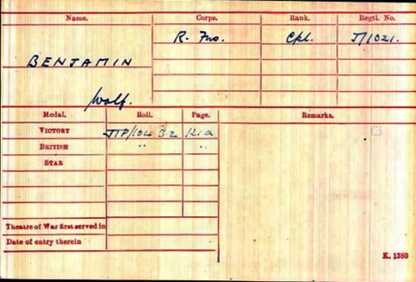 Name. Corps. Rank. Regtl. No.
R. Fus. Cpl. J/1021.
BENJAMIN
Wolf.
Medal. Roll. Page. Remarks.
VICTORY JTP/104 B2 121a
BRITISH " "
STAR
Theatre of War first served in
Date of entry therein
K. 1380